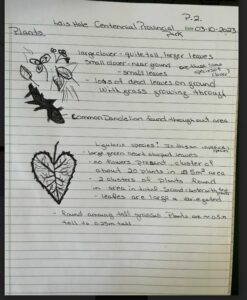 P.2.
Lois Hole Centennial Provincial Park
Date 03-10-2023
Plants
large clover - quite tall, larger leaves
Small clover - near ground
- small leaves
are these same species of clover
- lots of dead leaves on ground
with grass growing through
Common Dandelion found through out area
ligularia species? Is this an invasive species?
- large green heart shaped leaves
- no flowers present, cluster of
about 20 plants in area
- 2 clusters of plants found
in area
- leaves are large & variegated
- found among tall grasses. Plants are
tall to 0.25m tall